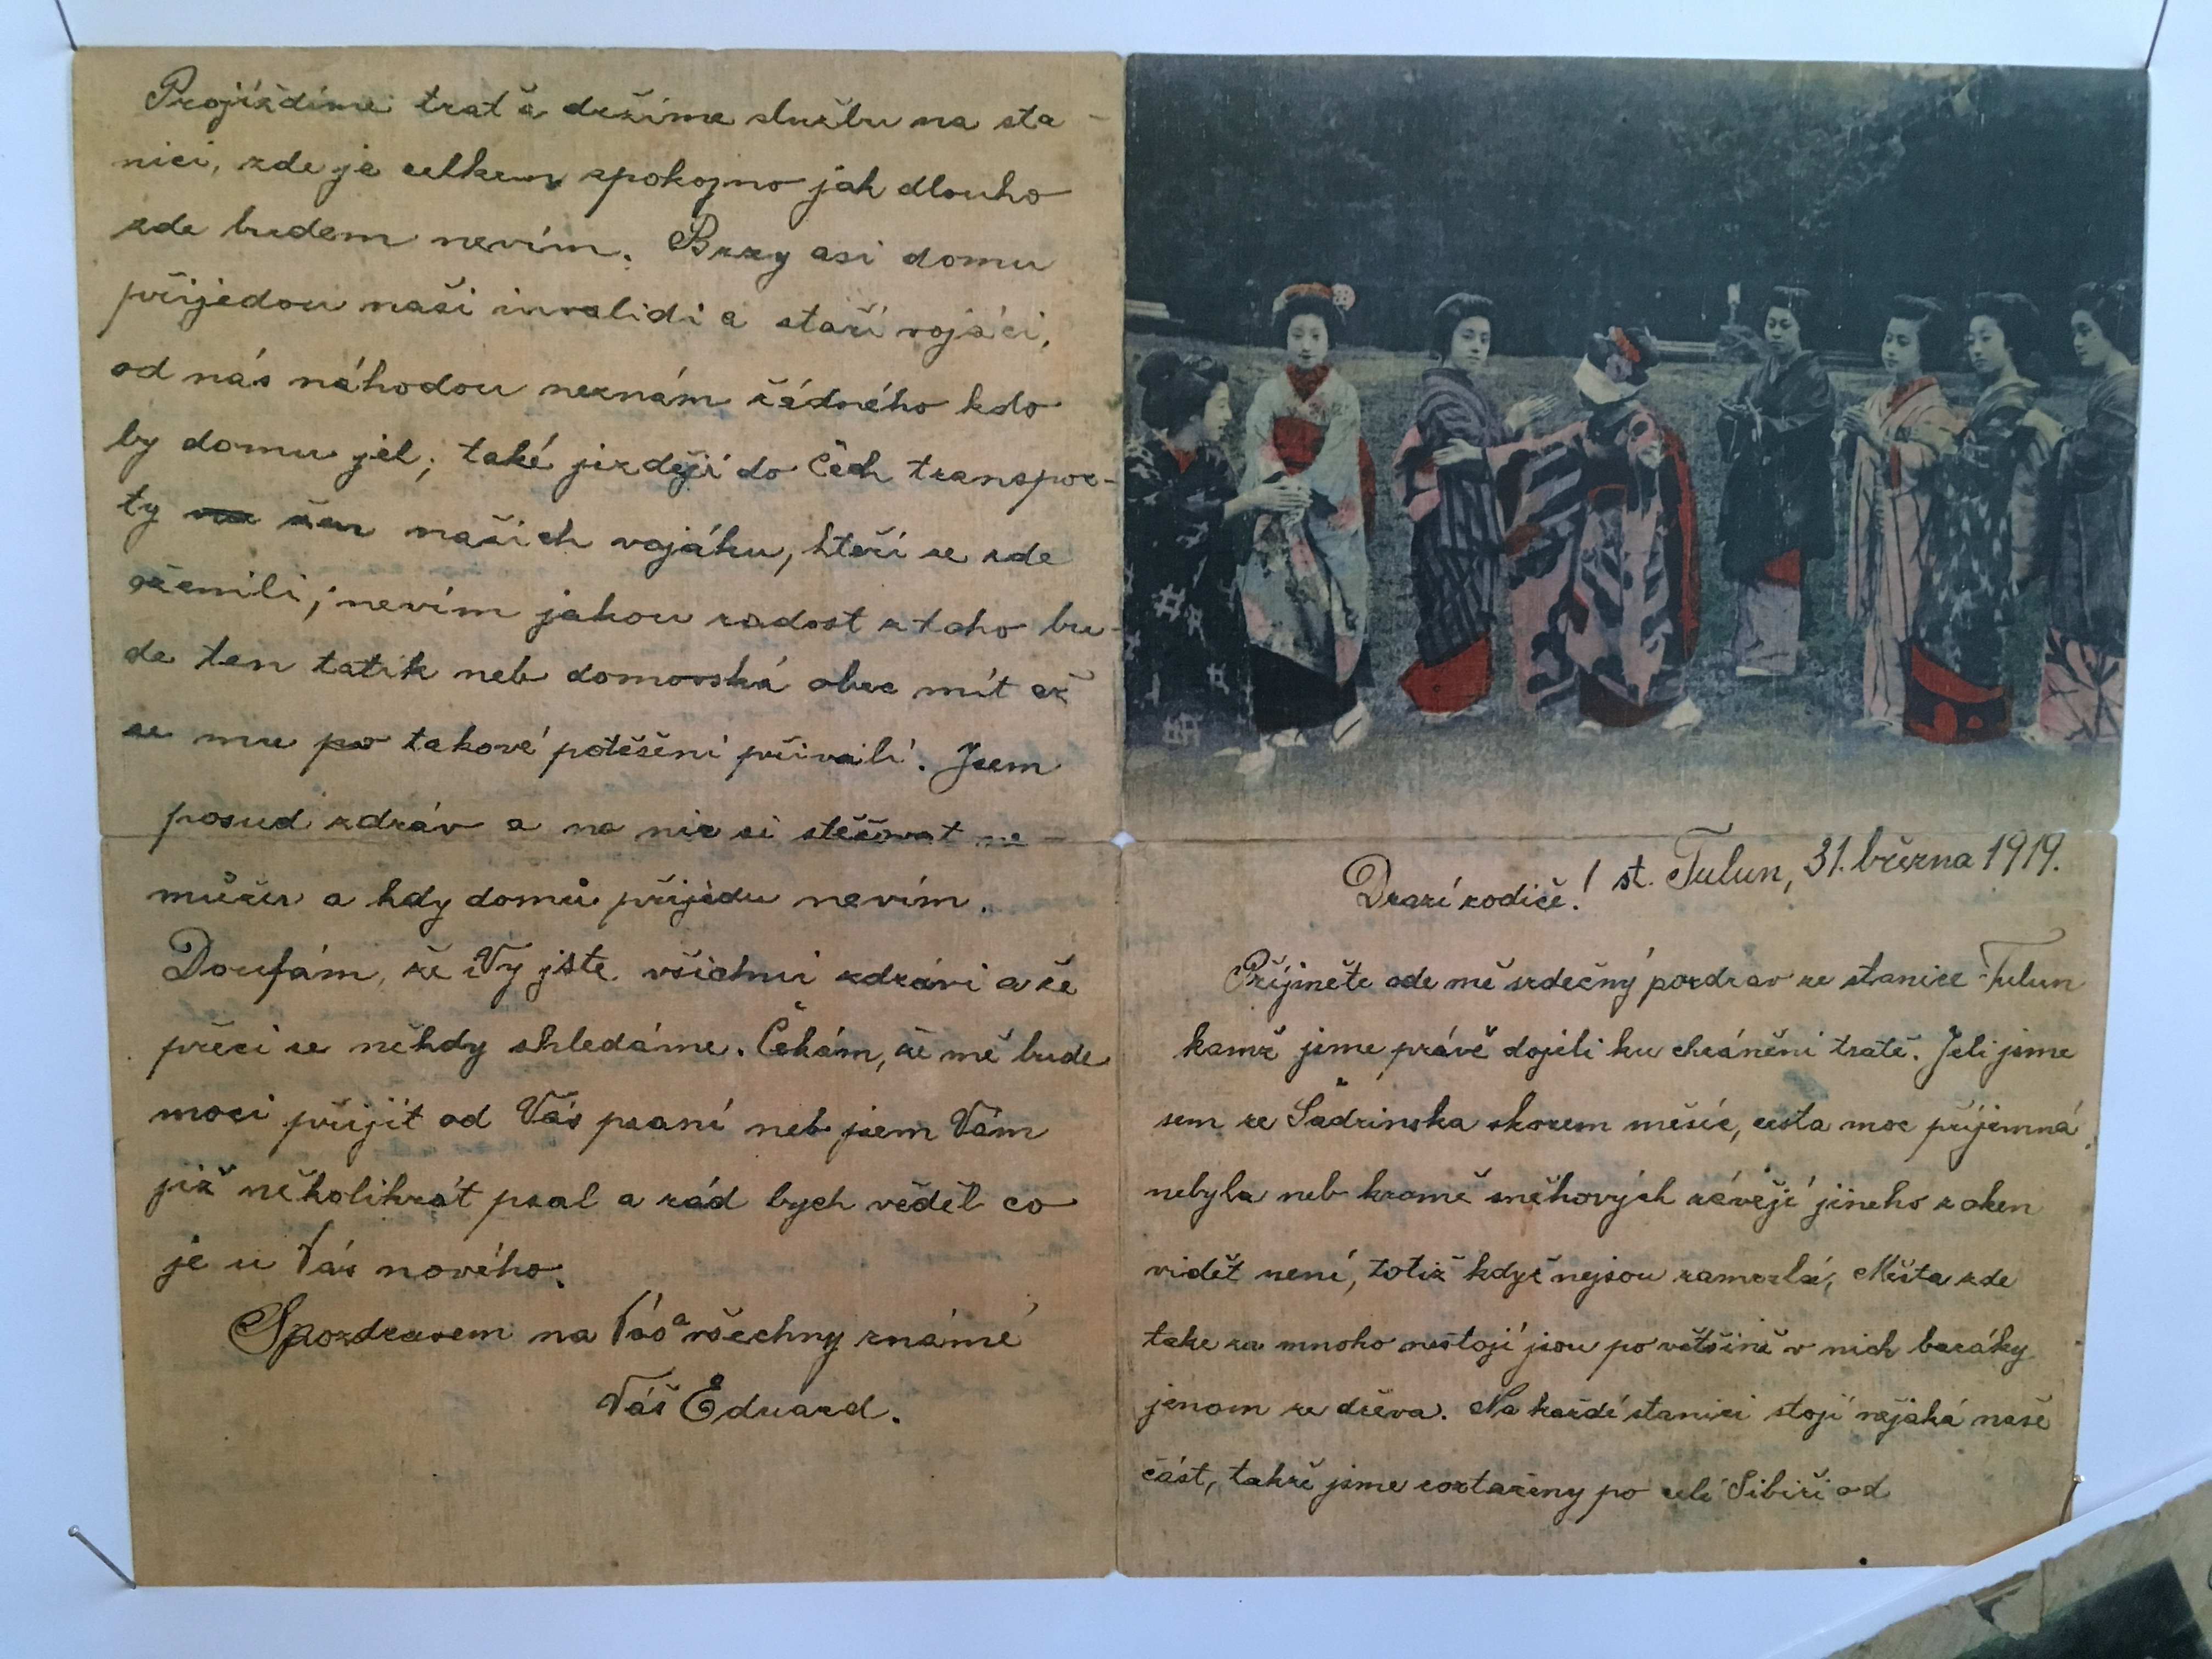 st. Tulun, 31. března 1919.
Drazí rodiče!
Přijměte ode mě srdečný pozdrav ze stanice Tulun
kamž jsme právě dojeli ku chránění tratě. Jeli jsme
sem ze Šadrinska skorem měsíc, cesta moc příjemná
nebyla neb kromě sněhových závějí jineho z oken
vidět není, totiž když nejsou zamrzlá, Města zde
take za mnoho nestojí jsou po většině v nich baráky
jenom ze dřeva. Na každé stanici stojí nějaká naše
část, takže jsme roztaženy po celé Sibiři od
Projíždíme trať a držíme službu na sta-
nici, zde je celkem spokojno jak dlouho
zde budem nevím. Brzy asi domu
přijedou naši invalidi a staří vojáci,
od nás náhodou neznám žádného kdo
by domu jel; také jezdějí do Čech transpor-
ty našich vojáku, kteří se zde
oženili; nevím jakou radost z toho bu-
de ten tatík neb domovská obec mít až
se mu takové potěšení přivalí. Jsem
posud zdráv a na nic si stěžovat ne-
můžu a kdy domů přijedu nevím.
Doufám, že i Vy jste všichni zdrávi a že
přeci se někdy shledáme. Čekám, že mě bude
moci přijít od Vás psaní neb jsem Vám
již několikrát psal a rád bych věděl co
je u Vás nového.
S pozdravem na Vás a všechny známé
Váš Eduard.